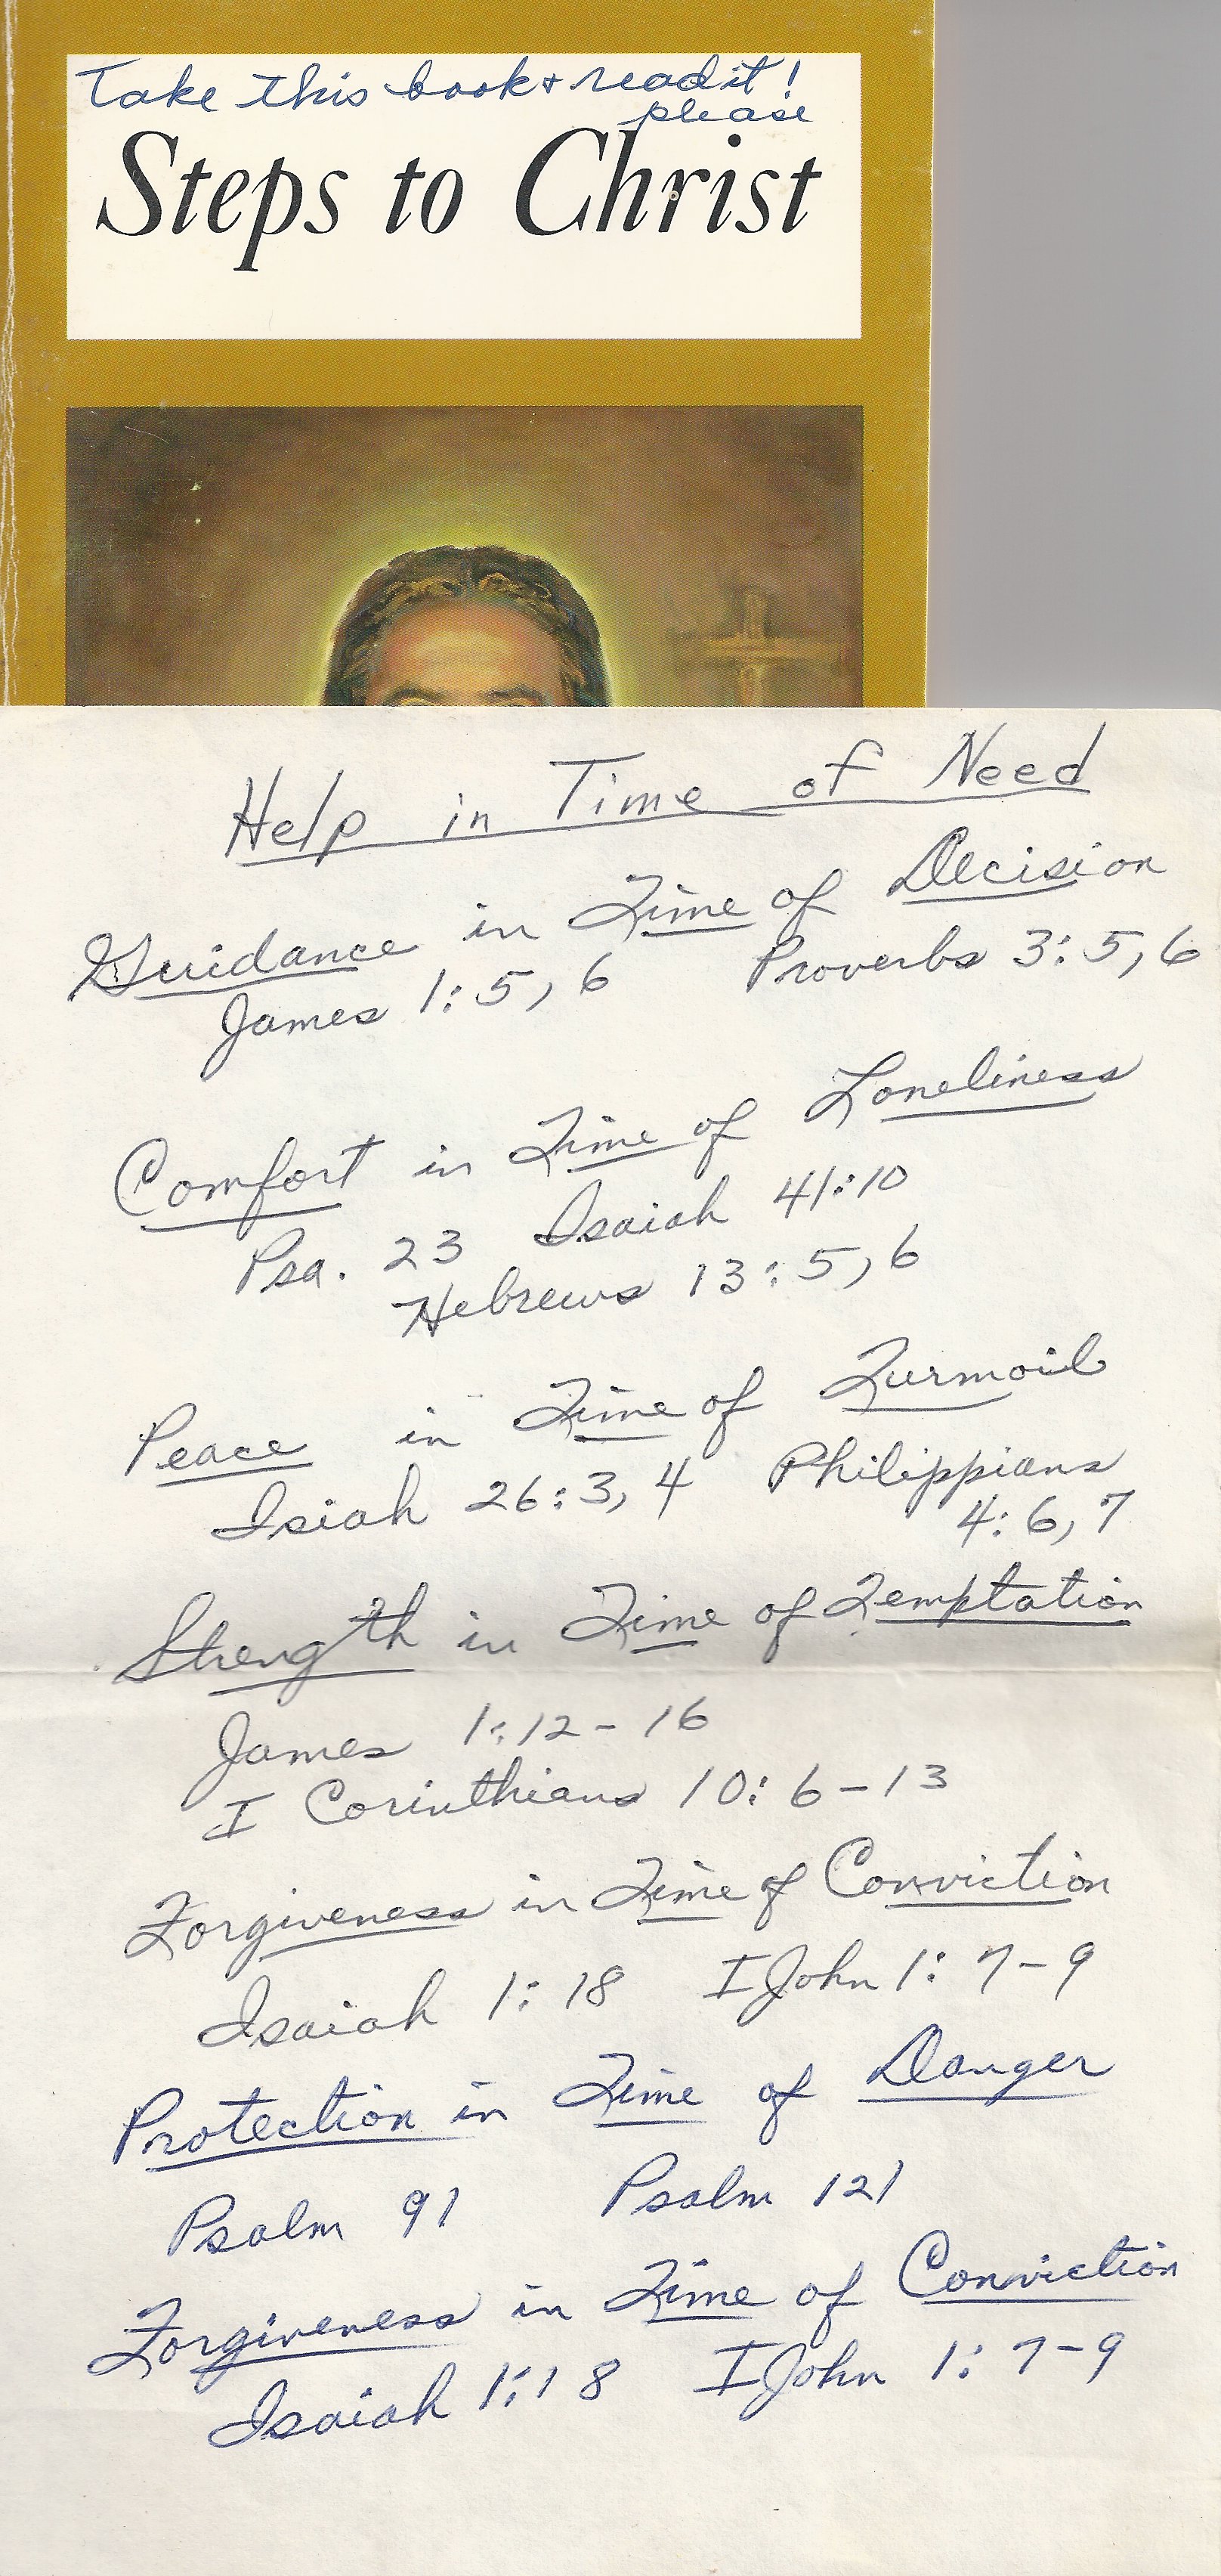 Take this book & read it!
please
Steps to Christ
Help in Time of Need
Guidance in Time of Decision
James 1:5, 6 Proverbs 3:5, 6
Comfort in Time of Loneliness
Psa. 23 Isaiah 41:10
Hebrews 13:5, 6
Peace in Time of Turmoil
Isiah 26:3, 4 Philippians
4:6, 7
Strength in Time of Temptation
James 1:12-16
I Corinthians 10:6-13
Forgiveness in Time of Conviction
Isaiah 1:18 I John 1:7-9
Protection in Time of Danger
Psalm 91 Psalm 121
Forgiveness in Time of Conviction
Isaiah 1:18 I John 1:7-9